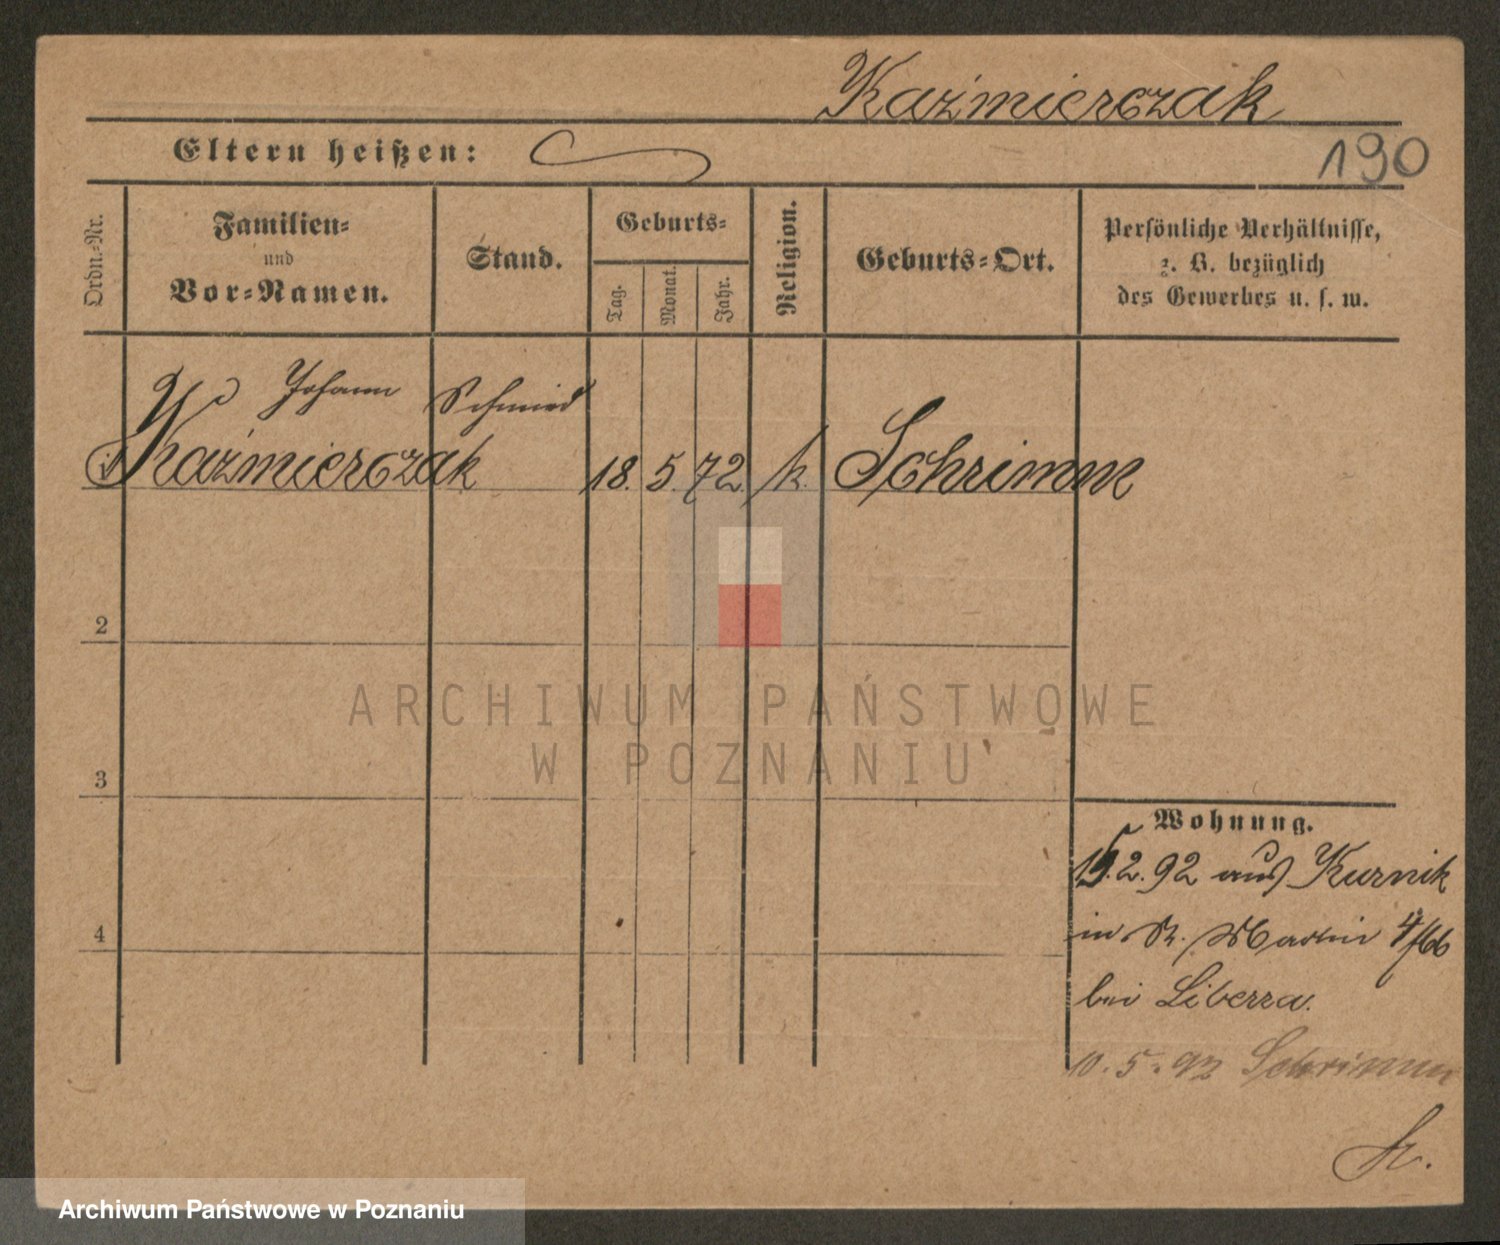 Kaźmierczak
Eltern heißen:
190
Ordn.-Nr.
Familien-
und
Vor-Namen.
Stand.
Geburts-
Tag.
Monat.
Jahr.
Religion.
Geburts-Ort.
Persönliche Verhältnisse,
z. B. bezüglich
des Gewerbes u. s. w.
Johann Schmied
1 Kaźmierczak 18. 5. 72. k. Schrimm
2
3
4
Wohnung.
15.2.92 aus Kurnik
in St. Martin 4/66
bei Liberra.
10.5.92 Schrimm
ARCHIWUM PAŃSTWOWE
W POZNANIU
Archiwum Państwowe w Poznaniu